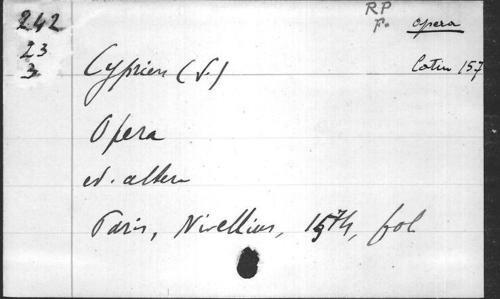 242
23
3
RP
F.
opera
latin 157
Cyprien (S.)
Opera
ed. altera
Paris, Nivellius, 1574, fol